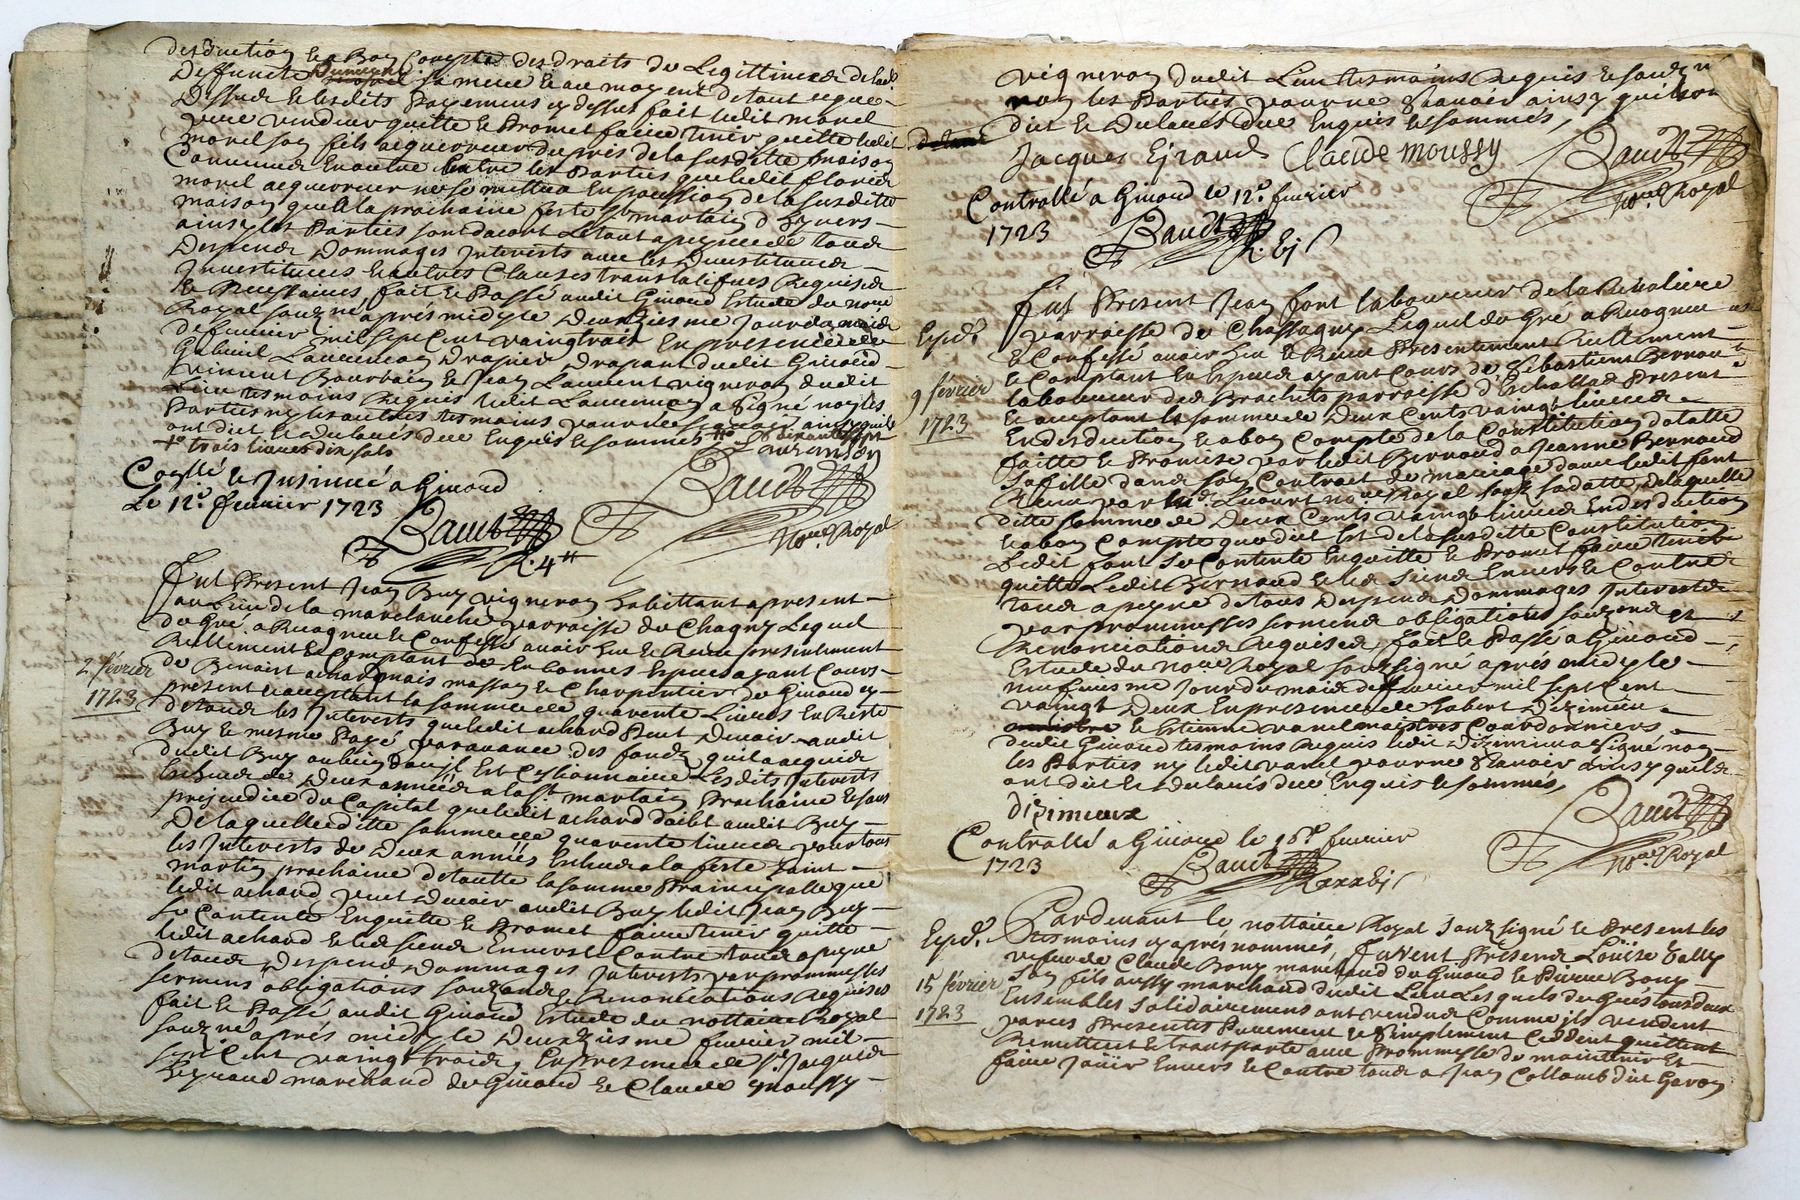 desduction et a Bon Compte des droits de Legittimes de lad.
Deffuncte sa mere et au moyent de tout ce que
Dessus et lesdits payemens cy dessus fait ledit morel
pere vendeur quitte et Promet faire tenir quitte ledit
morel son fils acquerreur du pris de la susditte maison
Convenu En outre Entre les Parties que ledit
morel acquerreur ne se mettra En possession de la susditte
maison qu'a la prochaine feste St martain d'hyvers
ainsy les Parties sont dacort Le tout a peyne de tous
Despends Dommages Interests avec les Devestitures
Investitures et autres Clauses translatifves Requises
et Necessaires, fait et Passé audit Givord Estude du no.re
Royal souz.né après midy le Deuxziesme jour du mois
de fevrier mil sept Cent vaingtrois En presence de
Gabriel Laurencon Drapier drapant dudit Givord
vincent et Jean Laurent vigneron dudit
Lieu tesmoins Requis ledit Laurencon a signé non les
Parties ny les autres tesmoins pour ne scavoir ainsy quils
ont dict et declarés de ce Enquis et sommés
trois livres dix sols
Laurenson
Con.llé et Insinué a Givord
Le 12.e fevrier 1723
Baudt
no.re Royal
Baudt
R. 4 tt
Fut Present Jean Buy vigneron habittant apresent
au Lieu de la marclanche parroisse de Chagny Lequel
de Gré a Recogneu et Confessé avoir heu et Receu presentement
Rellement et Comptant de En bonnes Especes ayant Cours
de Benoist achard mais masson et Charpentier de Givord cy
2 février present et acceptant la somme de quarente Livres En Reste
1723 de tous les Interests que ledit achard peut Devoir audit
Buy et mesme Payé par avance des fondz quil a acquis
dudit Buy ou bien dont il Est Cessionnaire Lesdits Interests
Eschus de Deux années a la St. martain Prochaine et sans
prejudice du Capital que ledit achard doibt audit Buy
De laquelle ditte somme de quarente livres pour tous
les Interests de Deux années Eschus a la feste saint
martin prochaine de toutte la somme Prainsipalle que
ledit achard peut Devoir audit Buy ledit Jean Buy
Se Contente Enquitte et Promet faire tenir quitte
ledit achard et les siens Envers et Contre tous a peyne
de tous Despends Dommages Interests par prommesses
sermens obligations souz.ons et Renonciations Requises
fait et Passé audit Givord Estude du nottaire Royal
souz.né après midy le Deuxziesme fevrier mil
sept Cent vaingt trois, En presence de Sr. Jacques
Eyraud marchand de Givord et Claude moussy
vigneron dudit Lieu tesmoins Requis et souz.né
non les Parties pour ne scavoir ainsy quil ont
dict et Declarés de ce Enquis et sommés,
Jacques Eyraud Claude moussy Baudt
no.re Royal
Controllé a Givord le 12.e fevrier
1723 Baudt
Fut Present Jean font laboureur de la Rivoliere
Exp.é parroisse de Chassagny Lequel de Gré a Recogneu
et Confessé avoir heu et Receu Presentement Rellement
9 février et Comptant En Especes ayant Cours de Sébastient Bernou
laboureur des Brachets parroisse d'Eschallas Present
1723 et acceptant la somme de Deux Cents vaingt livres
En desduction et a bon Compte de la Constitution dotalle
faitte et Promise par ledit Bernoud a Jeanne Bernoud
sa fille dans son Contrait de mariage avec ledit font
Receu par no.re Royal souz sa datte, de laquelle
ditte somme de Deux Cents vaingt livres En desduction
et a bon Compte que dict Est de la susditte Constitution
Ledit font Se Contente Enquitte et Promet faire tenir
quitte Ledit Bernoud et les siens Envers et Contre
tous a peyne de tous Despends Dommages Interests
par prommesses sermens obligations souz.ons et
Renonciations Requises, fait et Passé a Givord
Estude du no.re Royal souz signé après midy le
neufviesme jour du mois de fevrier mil sept Cent
vaingt Deux En presence de hubert Dizimieux
et Etienne vanel maistres Cordonniers
dudit Givord tesmoins Requis ledit Dizimieux a signé non
les Parties ny ledit vanel pour ne scavoir ainsy quil
ont dict et declarés de ce Enquis et sommés,
dizimieux Baudt
no.re Royal
Controllé a Givord le 16.e fevrier
1723 Baudt
Pardevant le nottaire Royal Souz signé et Present les
Exp.é tesmoins cy après nommés, Furent Presens Louise tally
vefve de Claude Bony marchand de Givord et Pierre Bony
15 février son fils aussy marchand dudit Lieu Lesquels de Grés tous deux
Ensembles Solidairement ont vendus Comme ils vendent
1723 par ces Presentes Purement et Simplement Ceddent quittent
Remettent et transporte avec Prommesse de maintenir Et
faire Jouir Envers et Contre tous a Jean Collomb dict Garon